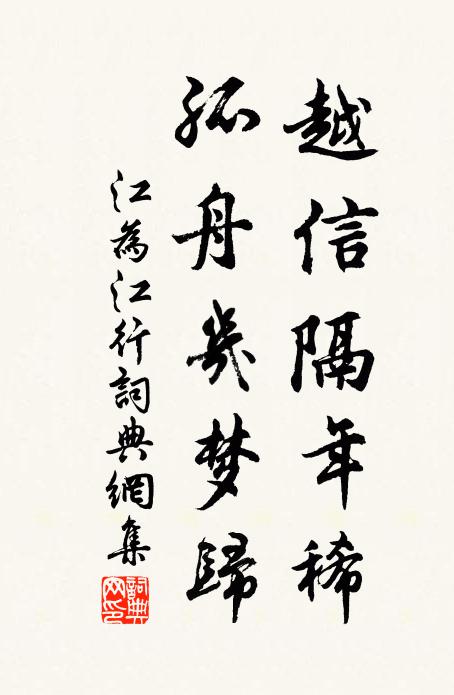 越信隔年稀
孤舟幾梦歸
江為江行詞典網集
詞典网印